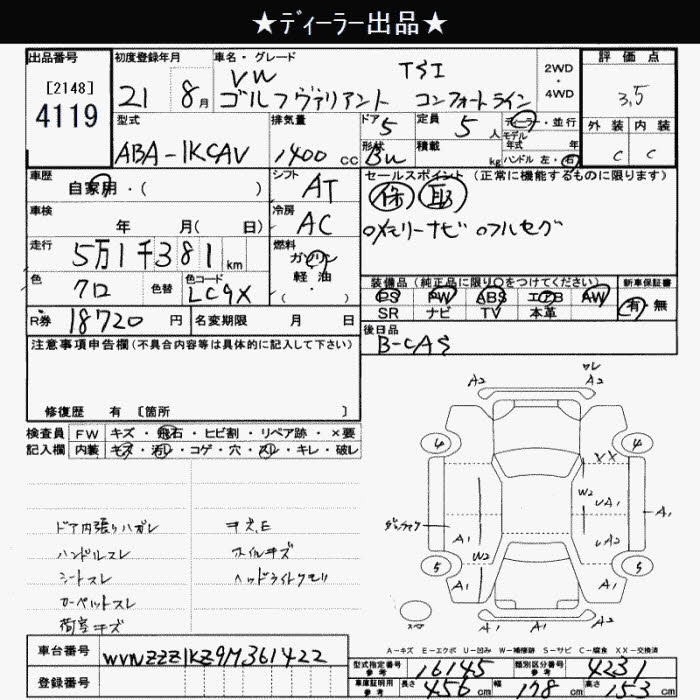 ★ディーラー出品★
出品番号 初度登録年月 車名・グレード 評価点
[2148]
4119
21 8月
VW TSI
ゴルフヴァリアント コンフォートライン
2WD
4WD
3.5
外装 内装
C C
型式 排気量 ドア 定員 ディーラー・並行
ABA-1KCAV 1400 CC 5 5人
形状 積載 モデル年式 年
Bu kg ハンドル 左・右
車歴 シフト セールスポイント (正常に機能するものに限ります)
自家用・( ) AT 保 取
車検 冷房
年 月( 日) AC メモリーナビ フルセグ
走行 燃料
5万1千381km ガソリン
軽油
・( )
色 色替 色コード
クロ LC9X
装備品(純正品に限り〇をつけてください) 新車保証書
PS PW ABS エアB AW 有・無
SR ナビ TV 本革
R券 18720 円 名変期限 月 日
後日品
B-CAS
注意事項申告欄(不具合内容等は具体的に記入して下さい)
修復歴 有 [箇所 ]
検査員 FW キズ・飛石・ヒビ割・リペア跡・×要
記入欄 内装 キズ・汚レ・コゲ・穴・スレ・キレ・破レ
ドア内張りハガレ キズ、E
ハンドルスレ ホイルキズ
シートスレ ヘッドライトクモリ
カーペットスレ
荷室キズ
A2 A2
4 4
XX
W2
A1 A1
A1 A2
W2
5 5
A1 A1
A1 A1 A2
A-キズ E-エクボ U-凹み W-補修跡 S-サビ C-腐食 XX-交換済
車台番号 WVWZZZ1KZ9M361422
登録番号
型式指定番号 参考 16145 類別区分番号 参考 4231
車庫証明用 参考 長さ 456cm 幅 178cm 高さ 153cm